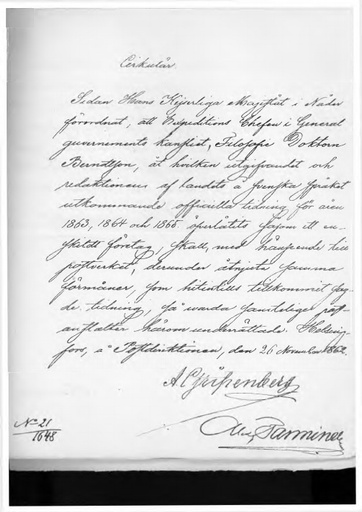 Cirkulär
Sedan Hans Kejserliga Majestät i Nåder
förordnat, att Expeditions Chefen i General
guvernements kansliet, Filosofie Doktorn
Berndtson, åt hvilken utgifvandet och
redaktionen af landets å svenska språket
utkommande officiella tidning för åren
1863, 1864 och 1865 öfverlåtits såsom ett en-
skildt företag, skall, med hänseende till
postverket, derunder åtnjuta samma
förmåner, som hitintills tillkommit sag-
de tidning, så warda samtelige post
anstalter härom underrättade. Helsing-
fors, å Postdirektionen, den 26 November 1862.
A Gripenberg
Alex Parminen
No 21
1648